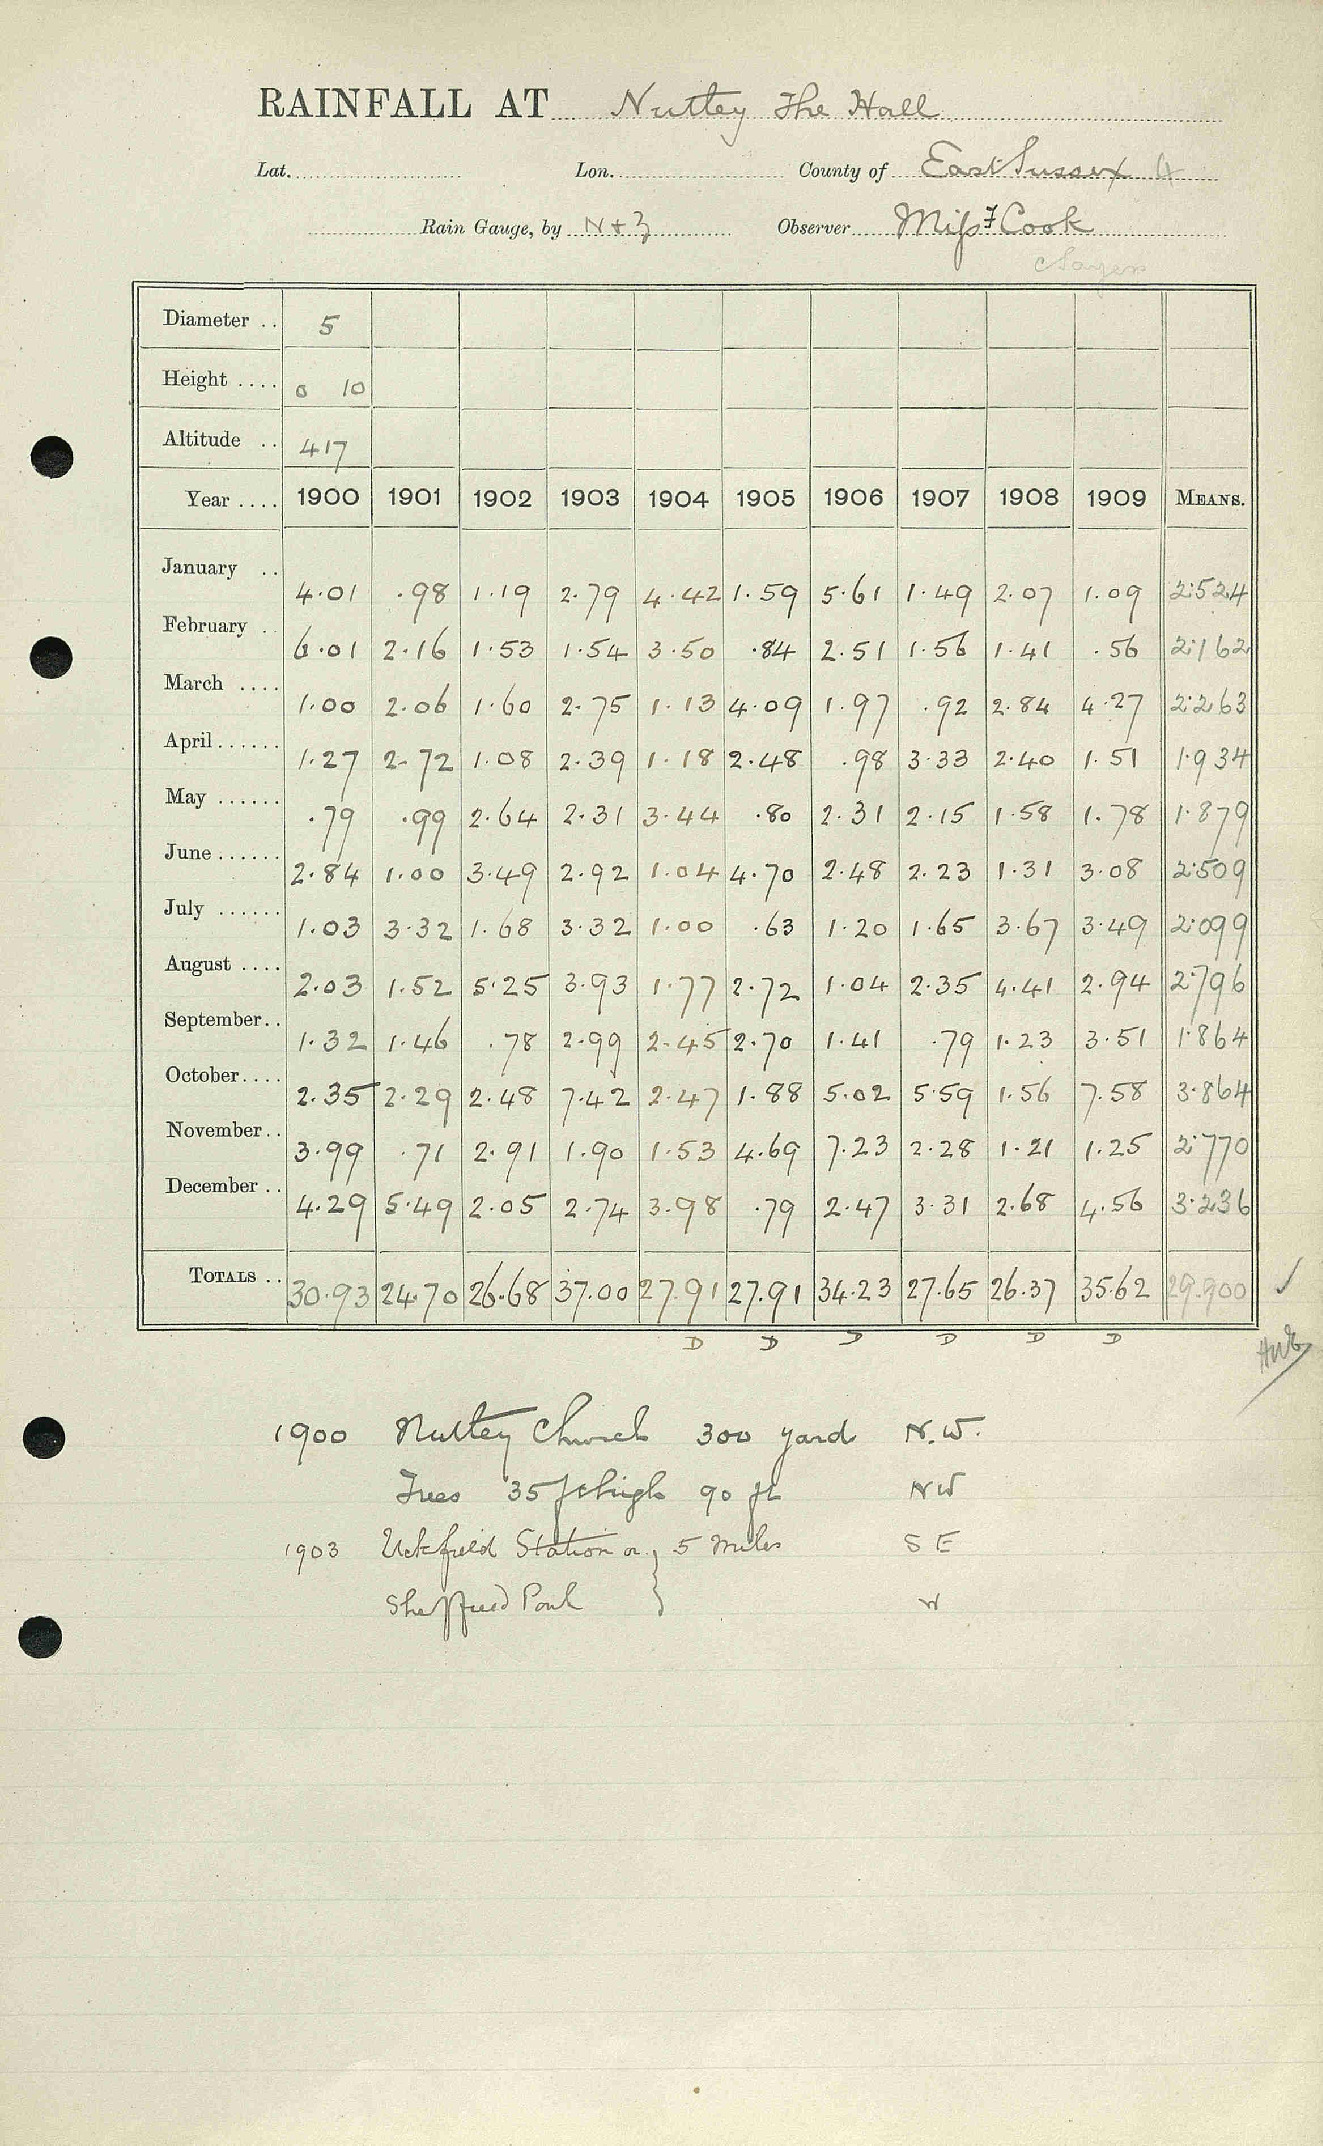 RAINFALL AT Nutley The Hall
Lat. Lon. County of East Sussex 4
Rain Gauge, by N+Z Observer Miss F Cook
Diameter .. 5
Height .... 0 10
Altitude .. 417
Year .... 1900 1901 1902 1903 1904 1905 1906 1907 1908 1909 MEANS.
January .. 4.01 .98 1.19 2.79 4.42 1.59 5.61 1.49 2.07 1.09 2.524
February .. 6.01 2.16 1.53 1.54 3.50 .84 2.51 1.56 1.41 .56 2.162
March .... 1.00 2.06 1.60 2.75 1.13 4.09 1.97 .92 2.84 4.27 2.263
April ...... 1.27 2.72 1.08 2.39 1.18 2.48 .98 3.33 2.40 1.51 1.934
May ...... .79 .99 2.64 2.31 3.44 .80 2.31 2.15 1.58 1.78 1.879
June ...... 2.84 1.00 3.49 2.92 1.04 4.70 2.48 2.23 1.31 3.08 2.509
July ...... 1.03 3.32 1.68 3.32 1.00 .63 1.20 1.65 3.67 3.49 2.099
August .... 2.03 1.52 5.25 3.93 1.77 2.72 1.04 2.35 4.41 2.94 2.796
September .. 1.32 1.46 .78 2.99 2.45 2.70 1.41 .79 1.23 3.51 1.864
October .... 2.35 2.29 2.48 7.42 2.47 1.88 5.02 5.59 1.56 7.58 3.864
November .. 3.99 .71 2.91 1.90 1.53 4.69 7.23 2.28 1.21 1.25 2.770
December .. 4.29 5.49 2.05 2.74 3.98 .79 2.47 3.31 2.68 4.56 3.236
TOTALS .. 30.93 24.70 26.68 37.00 27.91 27.91 34.23 27.65 26.37 35.62 29.900
D D D D D D
1900 Nutley Church 300 yard N.W.
Trees 35 ft high 90 ft NW
1903 Uckfield Station or } 5 miles S E
Sheffield Park W